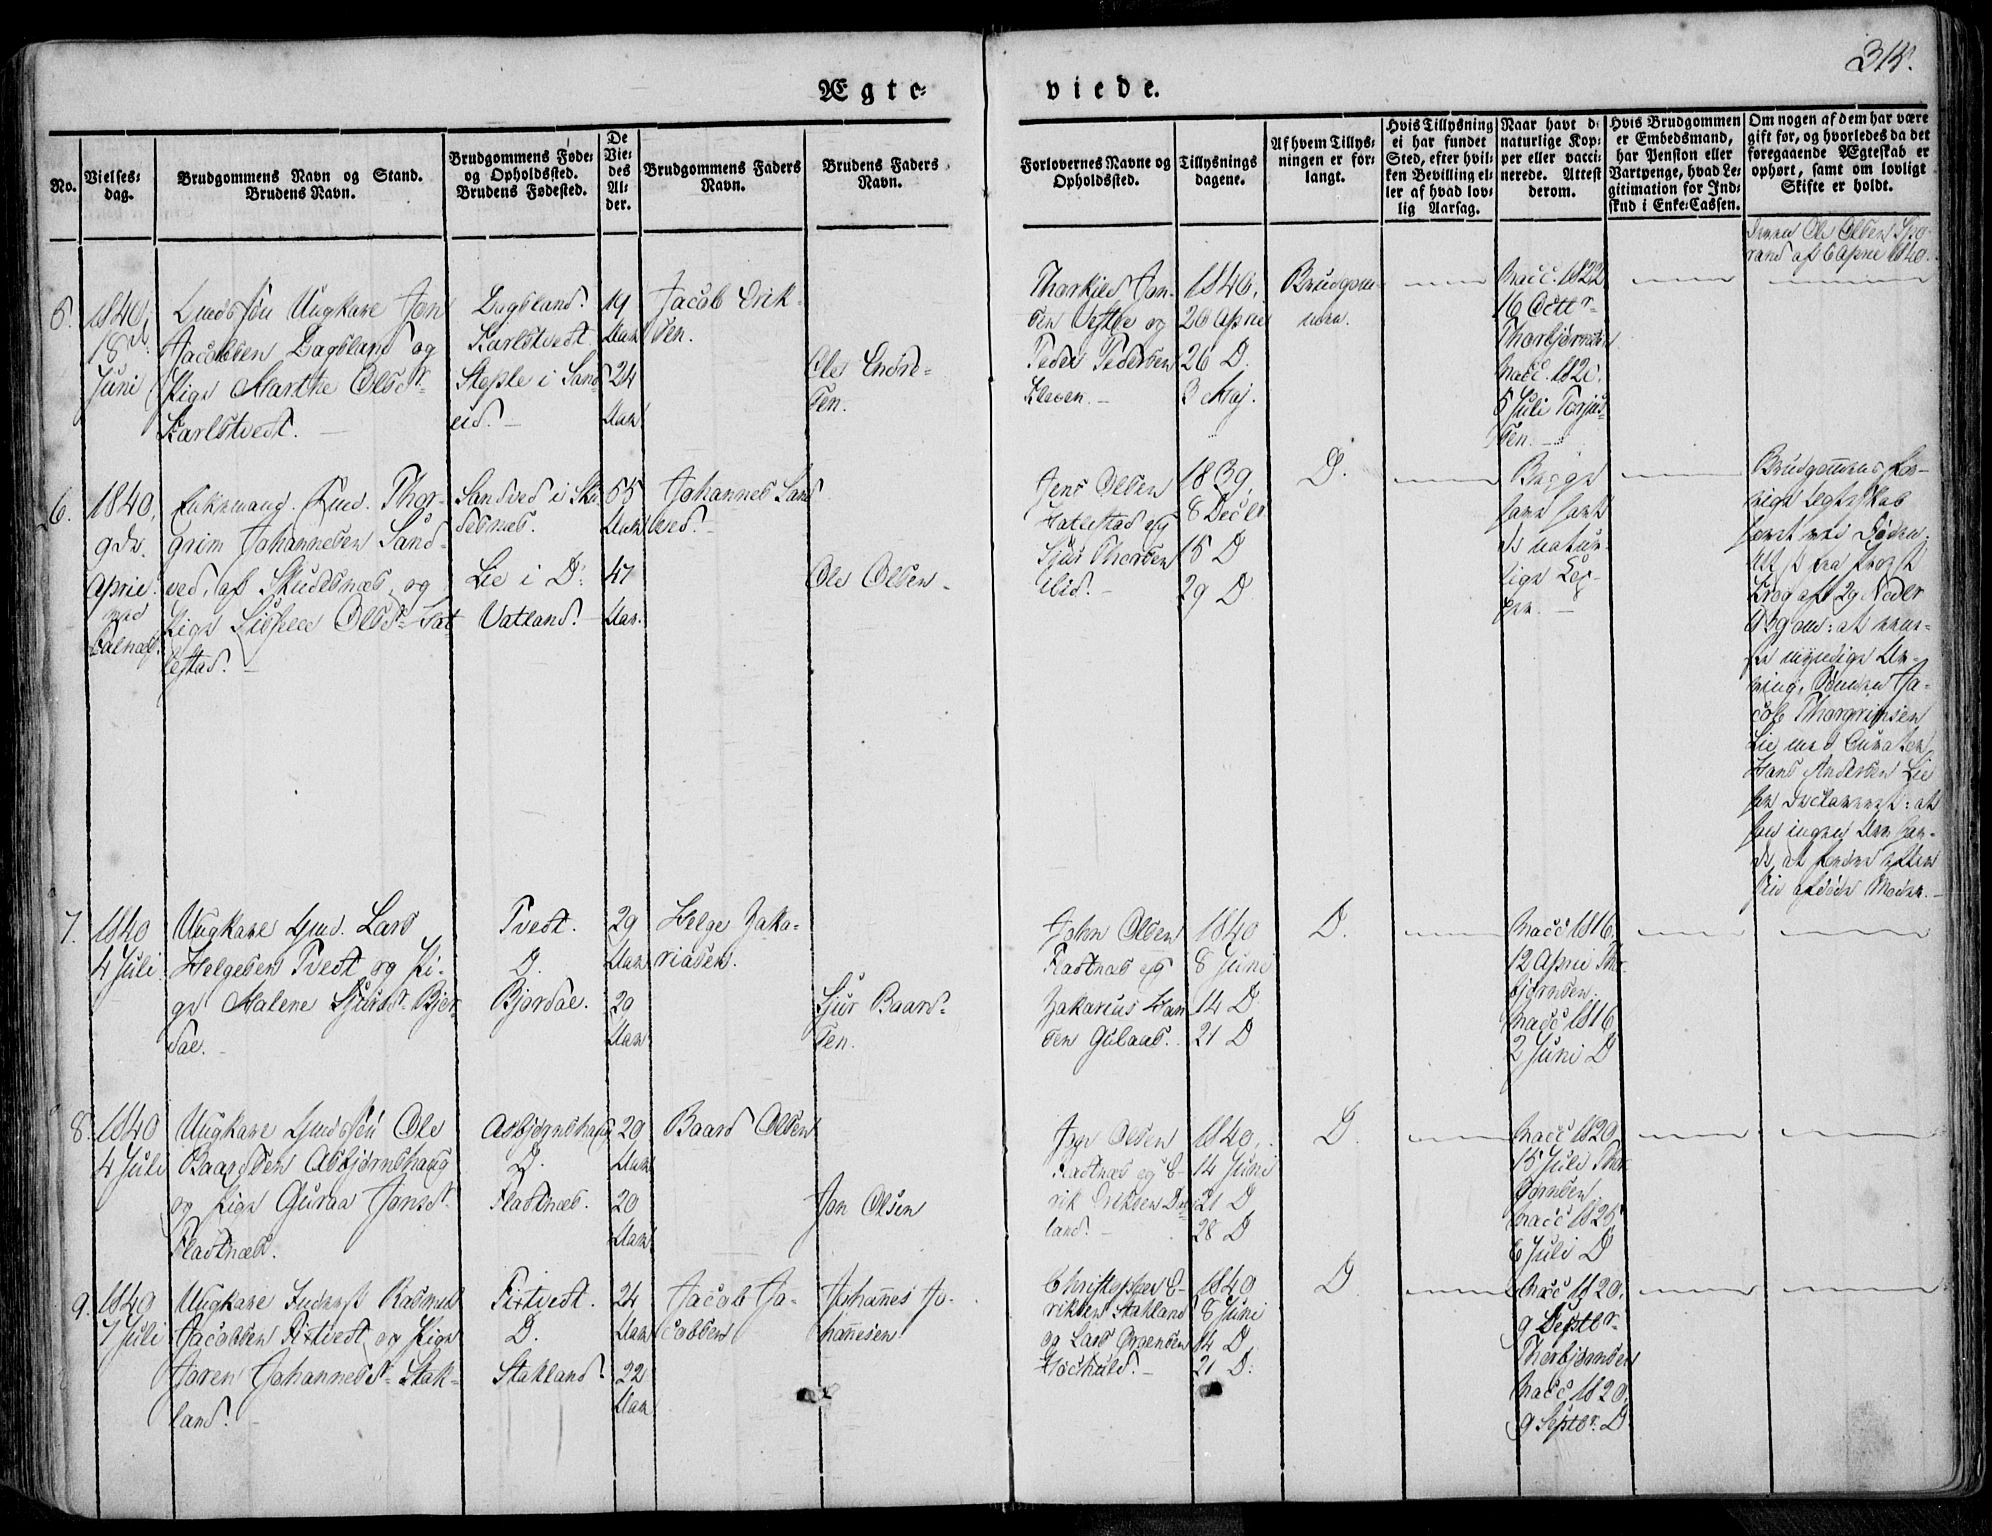 315.
Ægte-
viede.
No.
Vielses-
dag.
Brudgommens Navn og Stand.
Brudens Navn.
Brudgommens Føde-
og Opholdssted.
Brudens Fødested.
De
Vie-
des
Al-
der.
Brudgommens Faders
Navn.
Brudens Faders
Navn.
Forlovernes Navne og
Opholdssted.
Tillysnings
dagene.
Af hvem Tillys-
ningen er for-
langt.
Hvis Tillysning
ei har fundet
Sted, efter hvil-
ken Bevilling el-
ler af hvad lov-
lig Aarsag.
Naar havt d.
naturlige Kop-
per eller vacci-
nerede. Attest
derom.
Hvis Brudgommen
er Embedsmand,
har Pension eller
Vartpenge, hvad Le-
gitimation for Ind-
skud i Enke-Cassen.
Om nogen af dem har være
gift før, og hvorledes da det
foregaaende Ægteskab er
ophørt, samt om lovligt
Skifte er holdt.
Ole Olsen
rand af 6 April 1840.
5.
1840
18de
Juni
Ungkare Jon
Jacobsen Dagsland og
Pige Marthe Olsdr
Karlstvedt.
Dagsland.
Karlstvedt.
Steple i Sand-
eid.
19
Aar
24
Aar
Jacob Erik-
sen.
Ole Endre-
sen.
Thorkild Jon-
sen og
Peder Pedersen
1840.
20 April
26 D.
3 Maj.
Brudgom-
men.
Vacc. 1822
16 Octbr
Thorbjørnsen
Vacc. 1820.
5 Juli Torjus-
sen.
6.
1840.
9de
April
ved
Enkemand Thor-
grim Johannesen Sand-
ved, af Skudesnæs, og
Pige Olsdr Hat-
lestad.
Sandved i Sku-
desnæs.
Lie i D.
Vatland.
55
Aar
47
Aar
Johannes Sand-
ved.
Ole Olsen
Jens Olsen
Hatlestad og
Sjur Thorsen
Lid.
1839
8 Decbr
15 D
29 D
D.
Begge
have havt
de natur-
lige Kop-
per.
Brudgommens for-
rige Ægteskab
fra Provst
Krog af 29 Novbr
1839 om: at
myndige Ar-
ving, Sønnen Ja-
cob Thorgrimsen
Lie med Curator
Hans Andersen Lie
har declareret: at
han ingen Arv hav-
de at fordre efter
sin afdøde Moder.
7.
1840
4 Juli
Ungkare Lars
Helgesen Tvedt og Pi-
ge Malene Sjursdr Bjør-
dal.
Tvedt.
D.
Bjørdal.
29
Aar
29
Aar
Helge Zaka-
riasen.
Sjur Baard-
sen.
John Olsen
Fladtnæs og
Zakarias Han-
sen Gulaas.
1840
8 Juni
14 D.
21 D
D.
Vacc 1816.
12 April Thor-
bjørnsen.
Vacc 1816
2 Juni D
8.
1840
4 Juli
Ungkare Ole
Baardsen Asbjørnshaug
og Pige Guraa Jonsdr
Fladtnæs.
Asbjørnshaug
D.
Fladtnæs.
20
Aar
20
Aar
Baard Olsen
Jon Olsen
Olsen
Fladtnæs og E-
rik Eriksen Da-
land.
1840.
14 Juni
21 D
28 D
D.
Vacc 1820
15 Juli Thor-
bjørnsen
Vacc 1825
6 Juli D
9.
1840
7 Juli
Ungkare Inderst Rasmus
Jacobsen Fixtvedt og Pige
Maren Johannesdr Stak-
land.
Fixtvedt.
D.
Stakland.
24
Aar
22
Aar
Jacob Ja-
cobsen
Johannes Jo-
hannesen
Christopher E-
riksen Stakland
og Lars Ørgensen
1840
8 Juni
14 D.
21 D.
D
Vacc 1820.
9 Septbr
Thorbjørnsen
Vacc 1820.
9 Septbr. D.